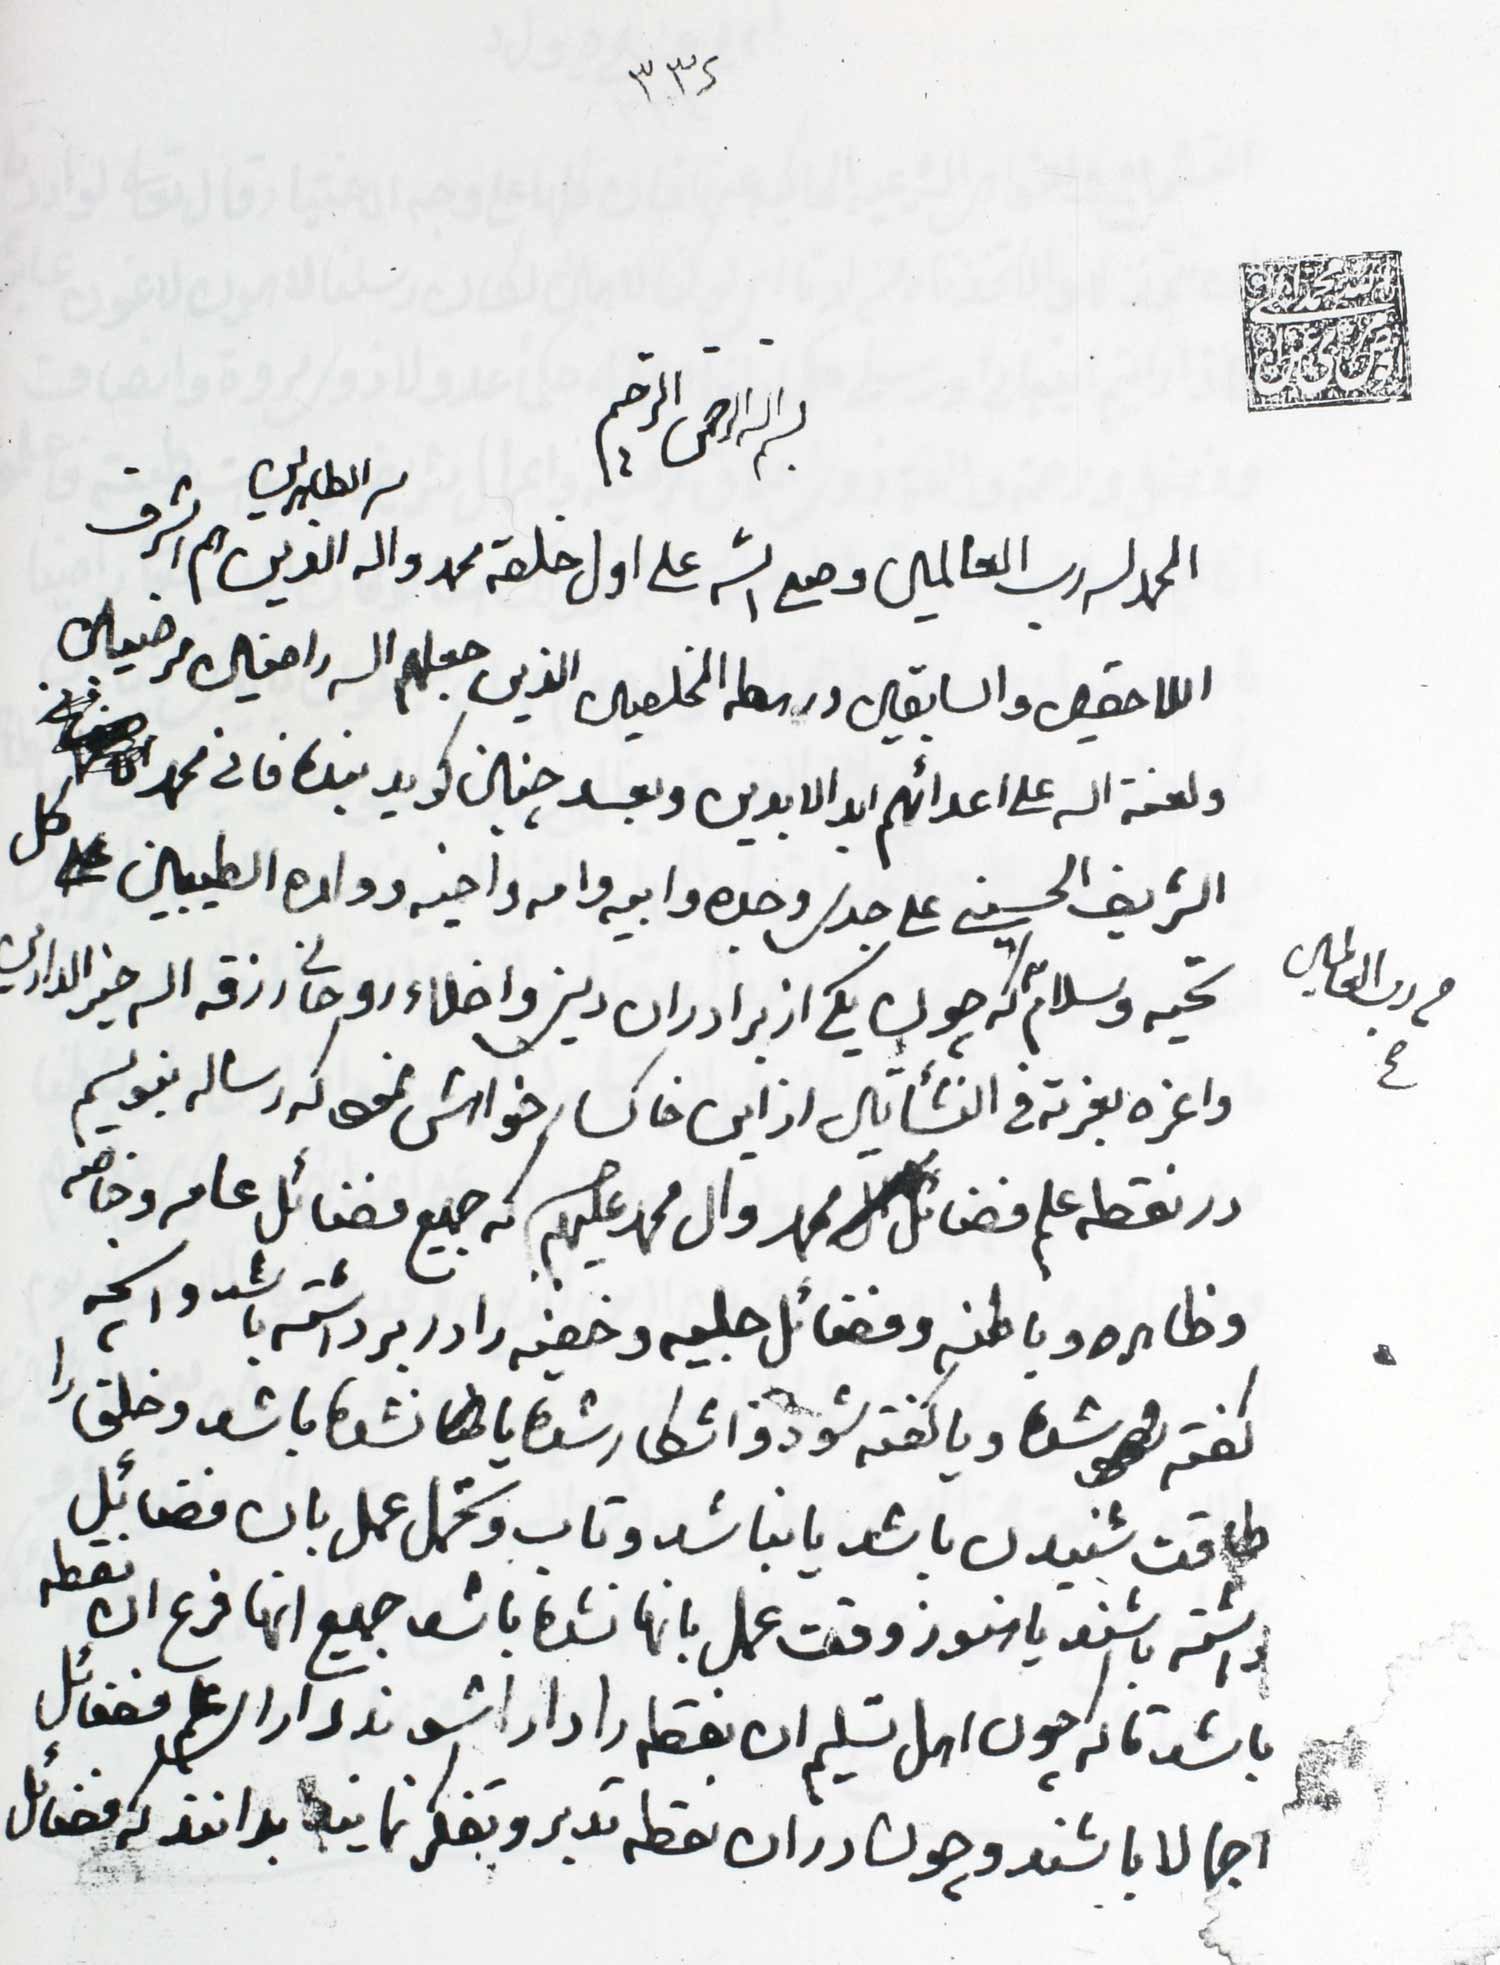 ۳۳۶
بسم الله الرحمن الرحیم
الحمد لله رب العالمین وصلی الله علی اول خلقه محمد واله الذین هم اشرف
من الطاهرین
اللاحقین والسابقین ورهطه المخلصین الذین جعلهم الله راضین مرضیین
ولعنة الله علی اعدائهم ابد الابدین وبعد چنین کوید بنده فانی محمد
الشریف الحسینی علی جده وجده وابیه وامه واخیه واولاده الطیبین کل
تحیه وسلام که چون یکی از برادران دینی واخلاء روحانی رزقه الله خیر الدارین
من رب العالمین
واعزه بعزته فی النشأتین از این خاکسار خواهش نمود که رساله بنویسم
در نقطه علم فضائل محمد وال محمد علیهم که جمیع فضائل عامه وخاصه
وظاهره وباطنه وفضائل جلیه وخفیه را در بر داشته باشد وانچه
کفته شده ویا کفته شود واشکار شده یا نشده باشد وخلق را
طاقت شنیدن باشد یا نباشد وتاب وتحمل عمل بان فضائل
داشته باشند یا هنوز وقت عمل بانها نشده باشد جمیع انها فرع ان نقطه
باشد تا که چون اهل تسلیم ان نقطه را دارا شوند دارای علم فضائل
اجمالا باشند وچون در ان نقطه تدبر وتفکر نمایند بدانند که فضائل